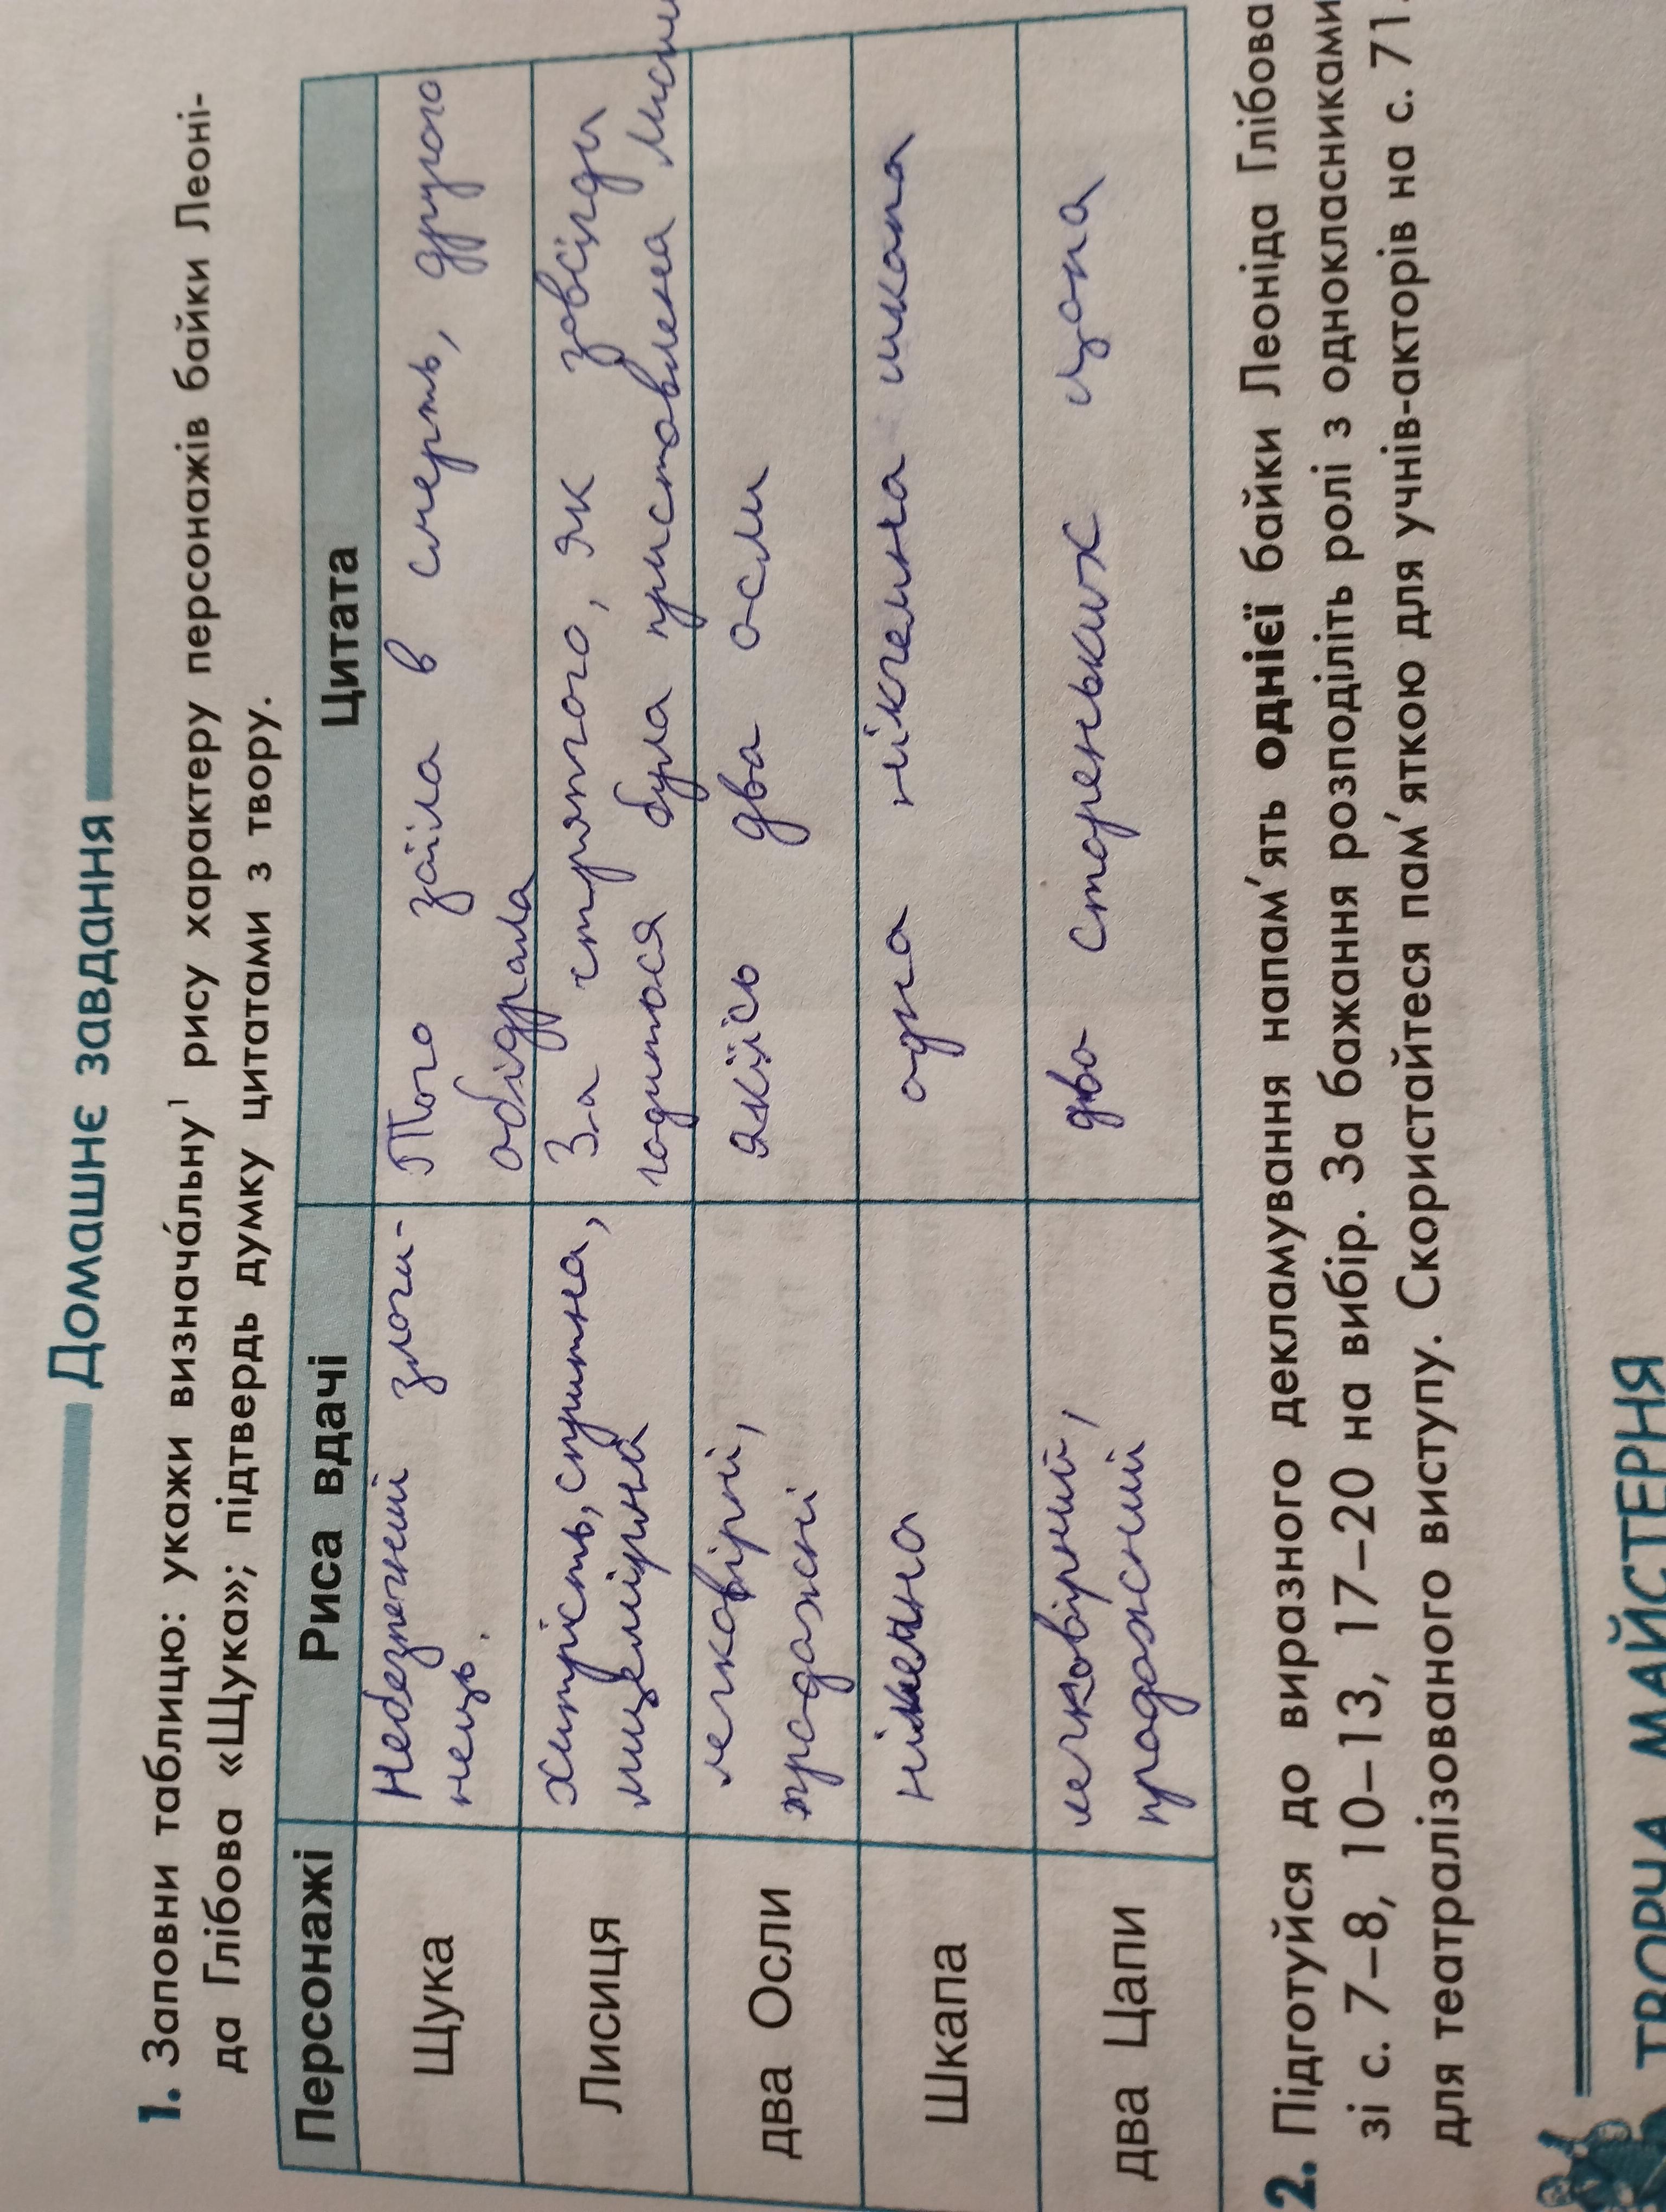 Домашнє завдання
1. Заповни таблицю: укажи визнача́льну¹ рису характеру персонажів байки Леоні-
да Глібова «Щука»; підтвердь думку цитатами з твору.
Персонажі Риса вдачі Цитата
Щука
Небезпечний злочи-
нець.
Того заїла в смерть, другого
обідрала
Лисиця
Хитрість, спритна,
лицемірна
За стряпчого, як завсігди
годитося була приставлена
два Осли
легковірні,
продажні
якїїсь два осли
Шкапа
нікчемна
одна нікчемна шкапа
два Цапи
легковірний,
продажний
два стареньких цапа
2. Підготуйся до виразного декламування напам’ять однієї байки Леоніда Глібова
зі с. 7–8, 10–13, 17–20 на вибір. За бажання розподіліть ролі з однокласниками
для театралізованого виступу. Скористайтеся пам’яткою для учнів-акторів на с. 71.
ТВОРЧА МАЙСТЕРНЯ